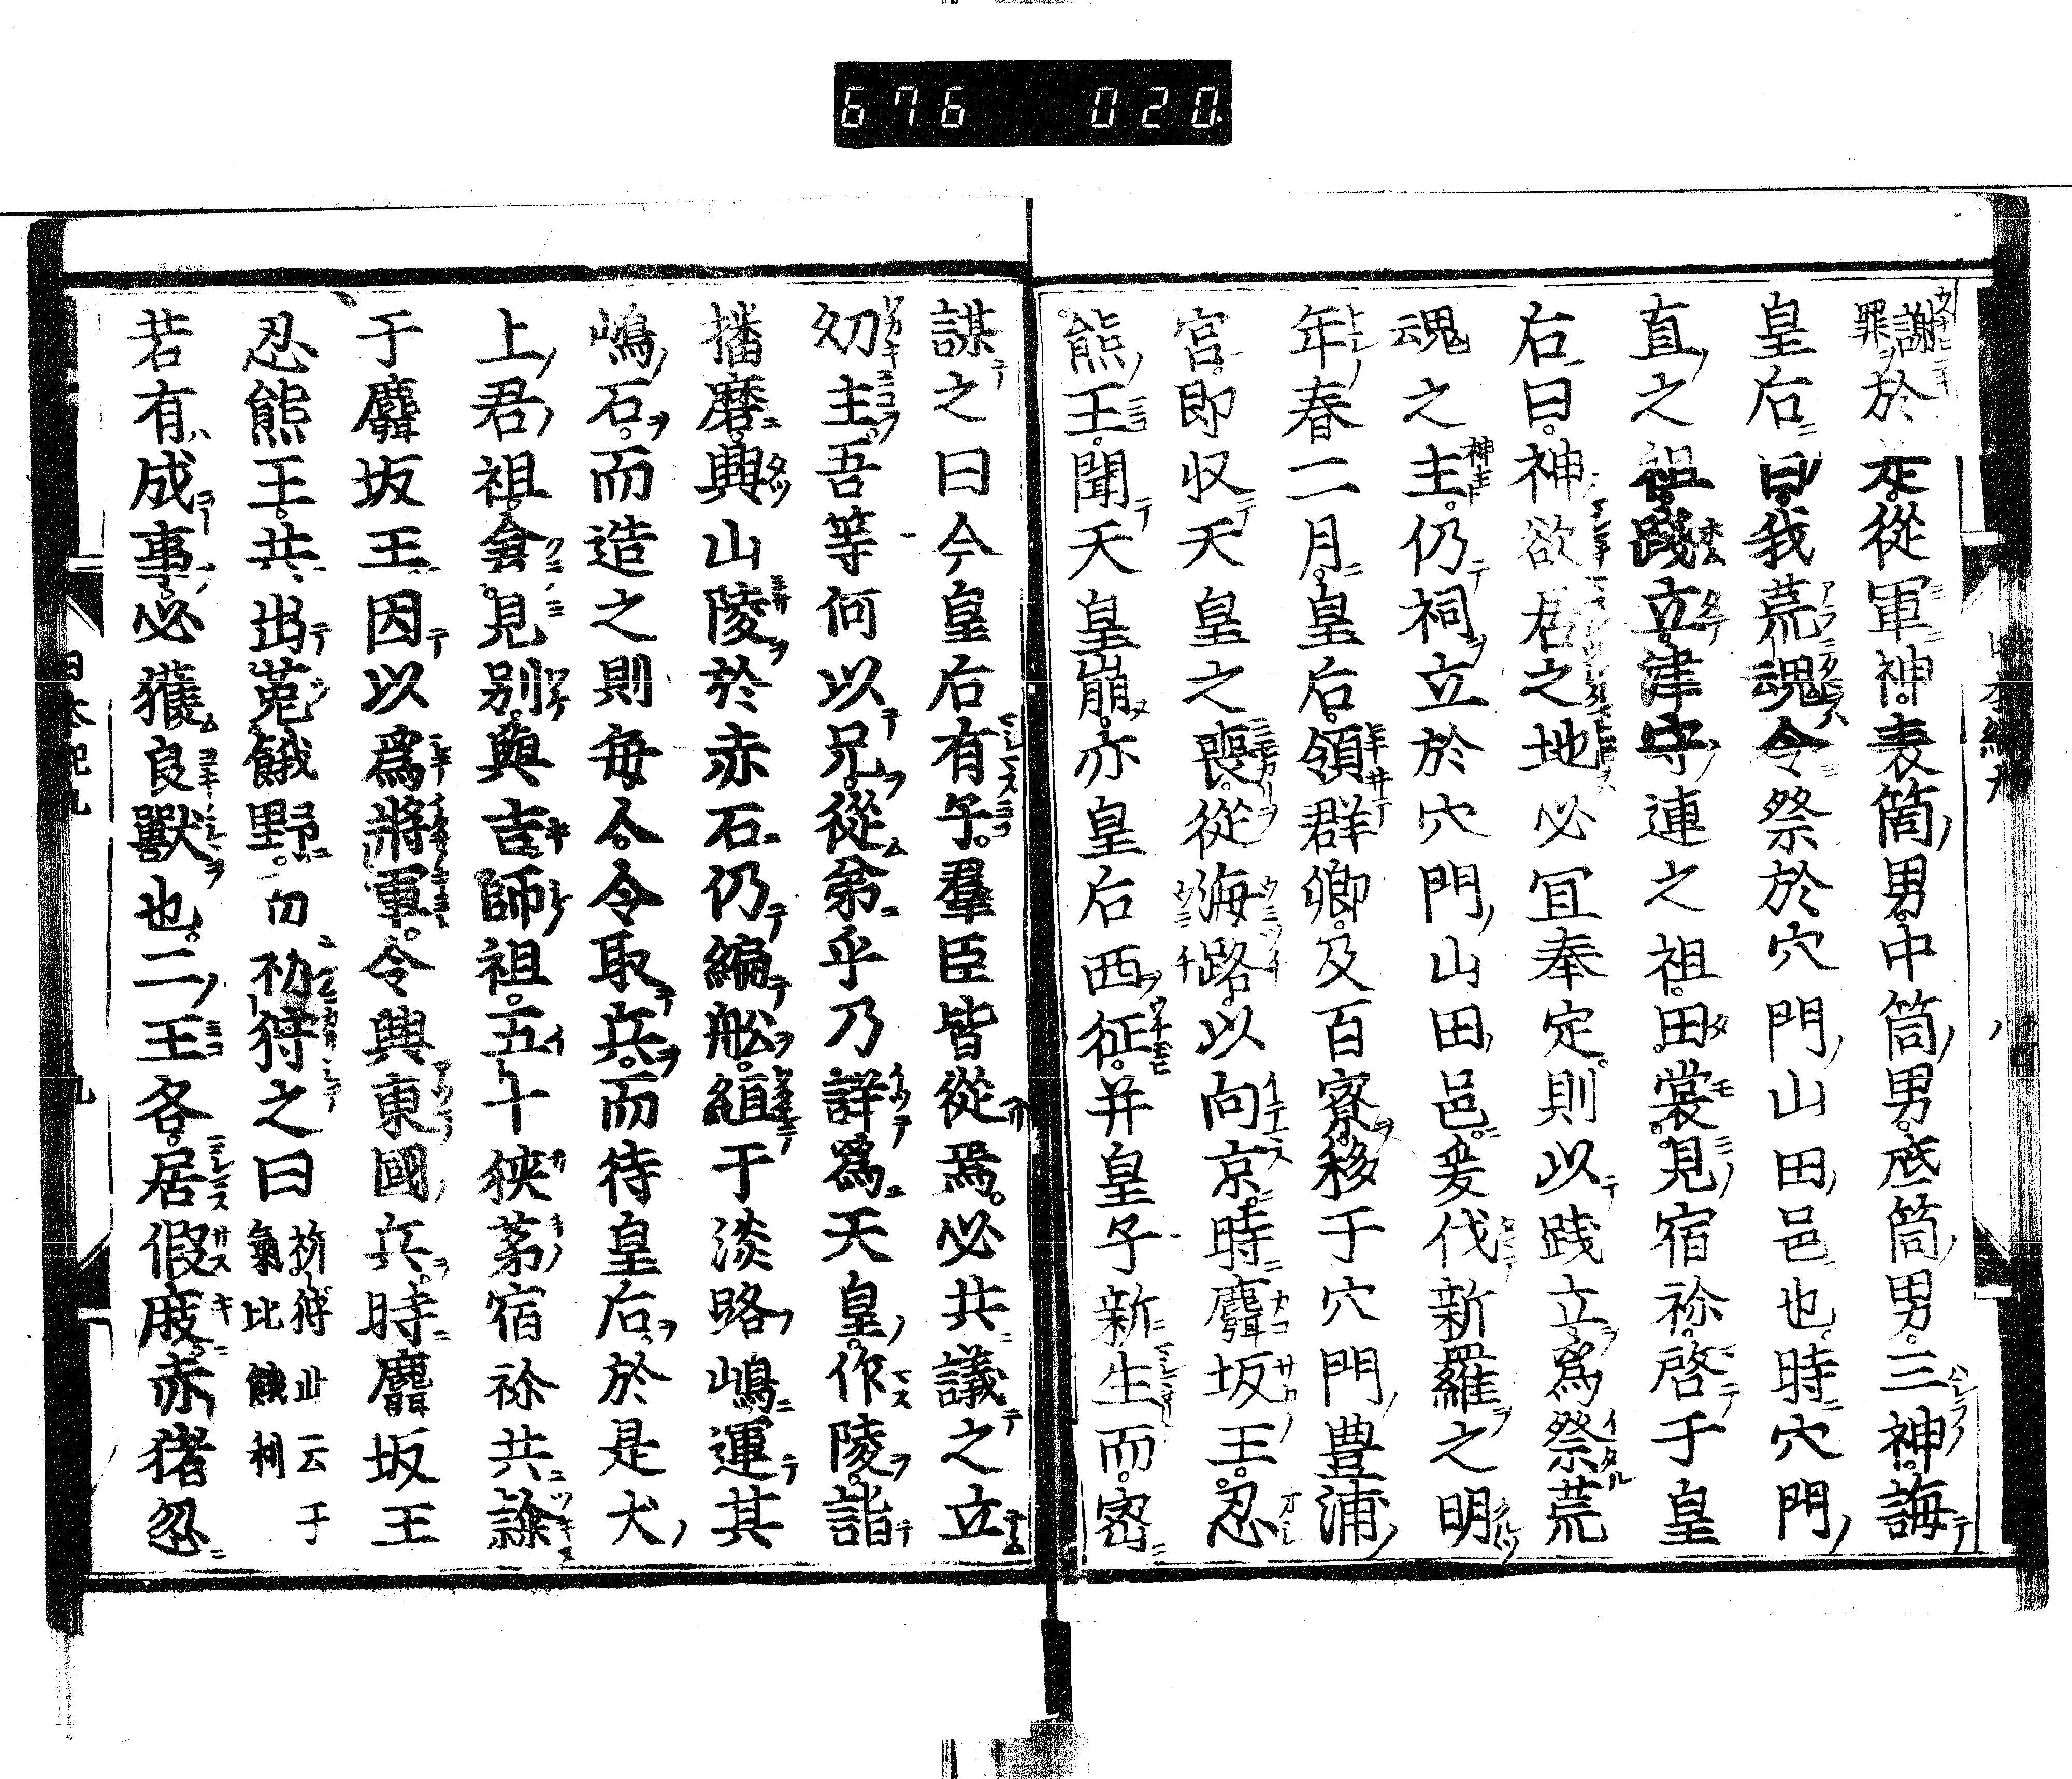 676 020
謝罪於是從軍神表筒男中筒男底筒男三神誨
皇后曰我荒魂令祭於穴門山田邑也時穴門
直之祖踐立津守連之祖田裳見宿祢啓于皇
后曰神欲居之地必冝奉定則以践立爲祭荒
魂之主仍祠立於穴門山田邑爰伐新羅之明
年春二月皇后領群卿及百寮移于穴門豊浦
宮即収天皇之喪從海路以向京時麛坂王忍
熊王聞天皇崩亦皇后西征并皇子新生而密
謀之曰今皇后有子羣臣皆從焉必共議之立
幼主吾等何以兄從弟乎乃詳爲天皇作陵詣
播磨興山陵於赤石仍編舩絚于淡路嶋運其
嶋石而造之則毎人令取兵而待皇后於是犬
上君祖倉見別與吉師祖五十狹茅宿祢共隷
于麛坂王因以爲將軍令興東國兵時麛坂王
忍熊王共出菟餓野而祈狩之曰祈狩此云于氣比餓利
若有成事必獲良獸也二王各居假庪赤猪忽
日本紀九